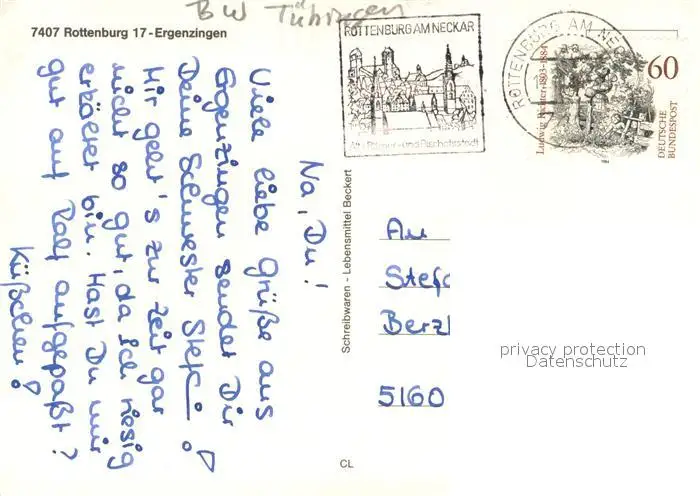 BW Tübingen
7407 Rottenburg 17-Ergenzingen
ROTTENBURG AM NECKAR
Alte Römer- und Bischofsstadt
ROTTENBURG AM NEC
Ludwig Richter 1803-1884
60
DEUTSCHE
BUNDESPOST
1984
Na, Du!
Viele liebe Grüße aus
Ergenzingen sendet Dir
Deine Schwester Stefi!
Mir geht's zur Zeit gar
nicht so gut, da ich riesig
erkältet bin. Hast Du mir
gut auf Ralf aufgepaßt?
Küßchen!
Schreibwaren - Lebensmittel Beckert
An
Stef
Berzl
5160
privacy protection
Datenschutz
CL